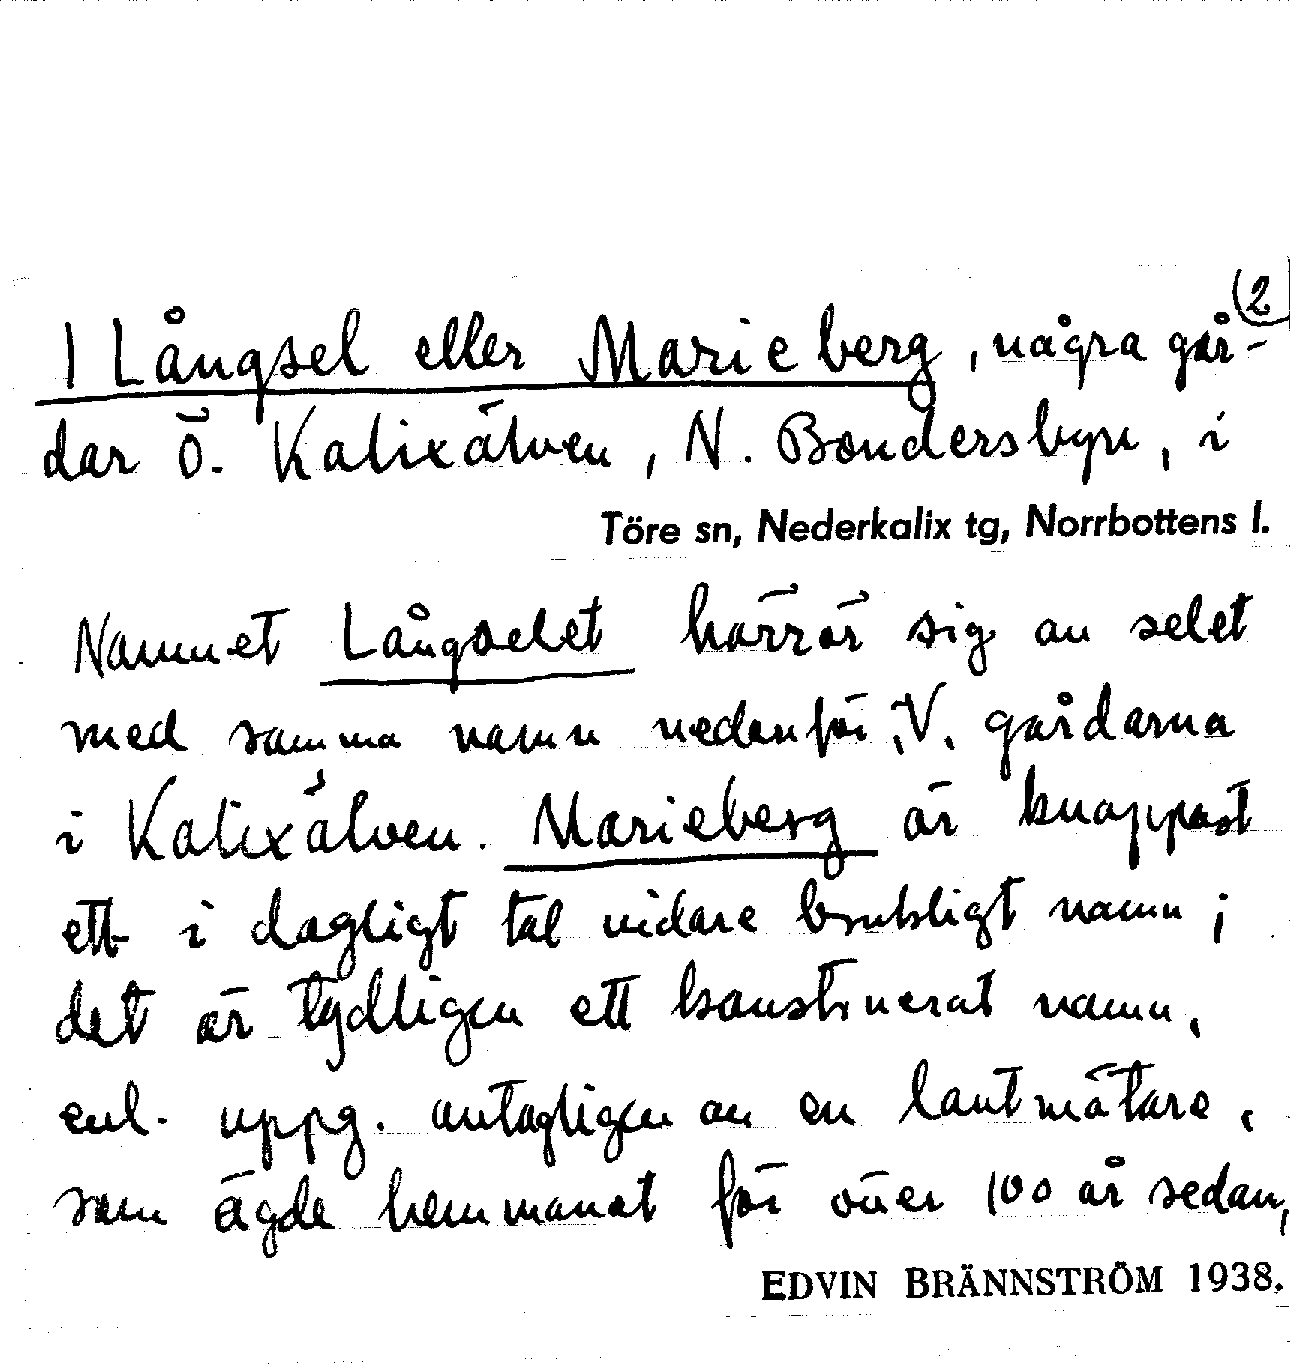 (2
1 Långsel eller Marieberg, några går-
dar Ö. Kalixälven, N. Bondersbyn, i
Töre sn, Nederkalix tg, Norrbottens l.
Namnet Långselet härrör sig av selet
med samma namn nedanför, V. gårdarna
i Kalixälven. Marieberg är knappast
ett i dagligt tal vidare brukligt namn;
det är tydligen ett konstruerat namn,
enl. uppg. antagligen av en lantmätare,
som ägde hemmanet för över 100 år sedan,
EDVIN BRÄNNSTRÖM 1938.